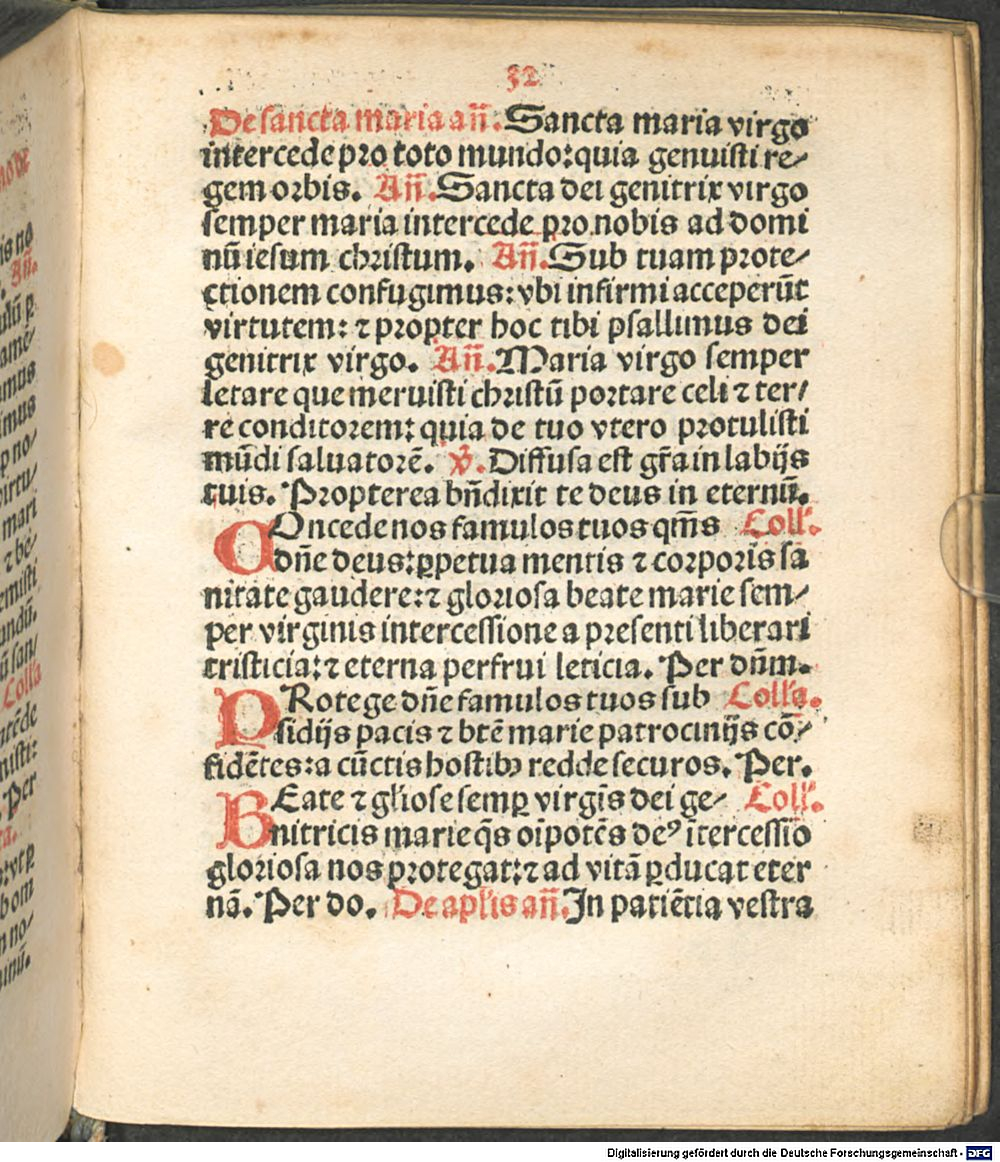 32
De sancta maria añ. Sancta maria virgo
intercede pro toto mundo: quia genuisti re⸗
gem orbis. Añ. Sancta dei genitrix virgo
semper maria intercede pro nobis ad domi
nū iesum christum. Añ. Sub tuam prote⸗
ctionem confugimus: vbi infirmi acceperūt
virtutem: ⁊ propter hoc tibi psallimus dei
genitrix virgo. Añ. Maria virgo semper
letare que meruisti christū portare celi ⁊ ter⸗
re conditorem: quia de tuo vtero protulisti
mūdi saluatorē. ℣. Diffusa est gr̄a in labijs
tuis. Propterea bn̄dixit te deus in eternū.
COncede nos famulos tuos qm̄s Coll'.
dn̄e deus: ꝑpetua mentis ⁊ corporis sa
nitate gaudere: ⁊ gloriosa beate marie sem⸗
per virginis intercessione a presenti liberari
tristicia: ⁊ eterna perfrui leticia. Per dn̄m.
PRotege dn̄e famulos tuos sub Coll'a.
sidijs pacis ⁊ btē marie patrocinijs cō⸗
fidētes: a cūctis hostibꝫ redde securos. Per.
BEate ⁊ gl'iose semꝑ virgīs dei ge⸗ Coll'.
nitricis marie qs̄ oīpotēs deꝰ ītercessio
gloriosa nos protegat: ⁊ ad vitā ꝑducat eter
nā. Per do. De apl'is añ. In patiētia vestra
Digitalisierung gefördert durch die Deutsche Forschungsgemeinschaft - DFG